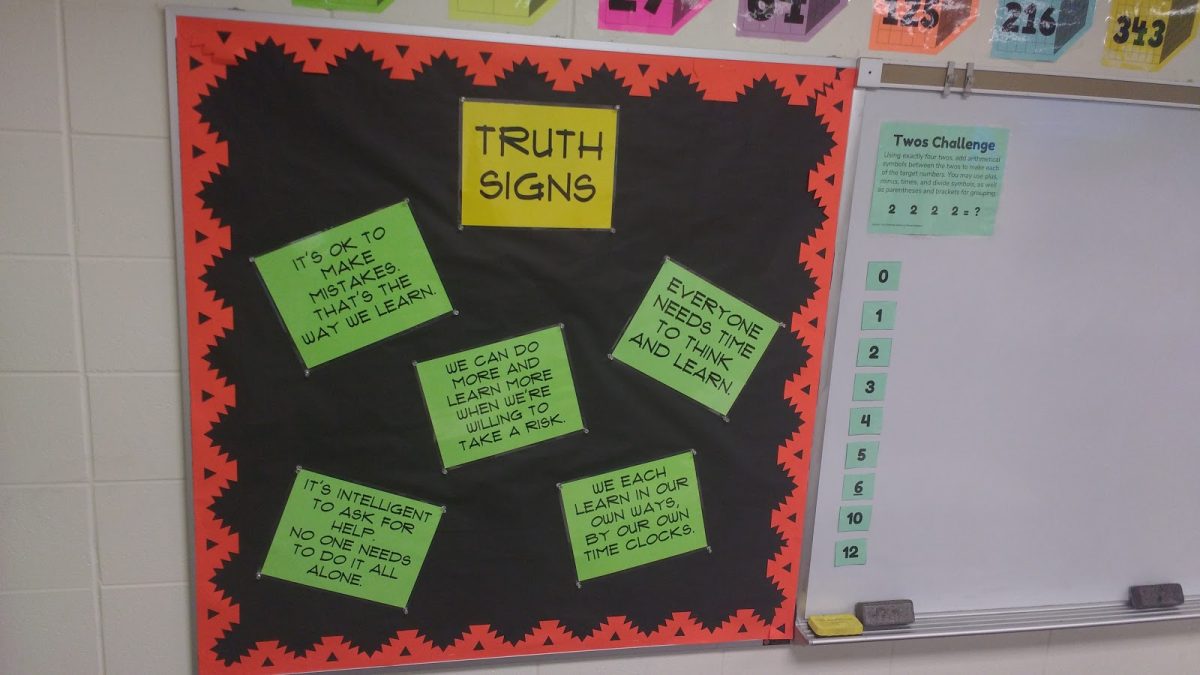 27
64
125
216
343
TRUTH
SIGNS
IT'S OK TO
MAKE
MISTAKES.
THAT'S THE
WAY WE LEARN.
EVERYONE
NEEDS TIME
TO THINK
AND LEARN.
WE CAN DO
MORE AND
LEARN MORE
WHEN WE'RE
WILLING TO
TAKE A RISK.
IT'S INTELLIGENT
TO ASK FOR
HELP.
NO ONE NEEDS
TO DO IT ALL
ALONE.
WE EACH
LEARN IN OUR
OWN WAYS,
BY OUR OWN
TIME CLOCKS.
Twos Challenge
Using exactly four twos, add arithmetical
symbols between the twos to make each
of the target numbers. You may use plus,
minus, times, and divide symbols, as well
as parentheses and brackets for grouping.
2 2 2 2 = ?
0
1
2
3
4
5
6
10
12